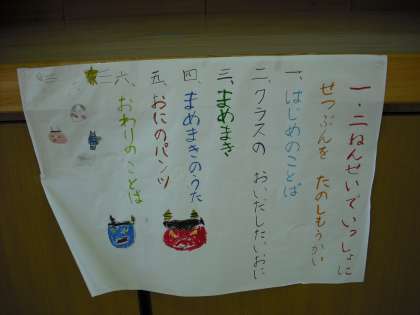 一、二ねんせいでいっしょに
せつぶんを たのしもうかい
一、はじめのことば
二、クラスの おいだしたいおに
三、まめまき
四、まめまきのうた
五、おにのパンツ
六、おわりのことば